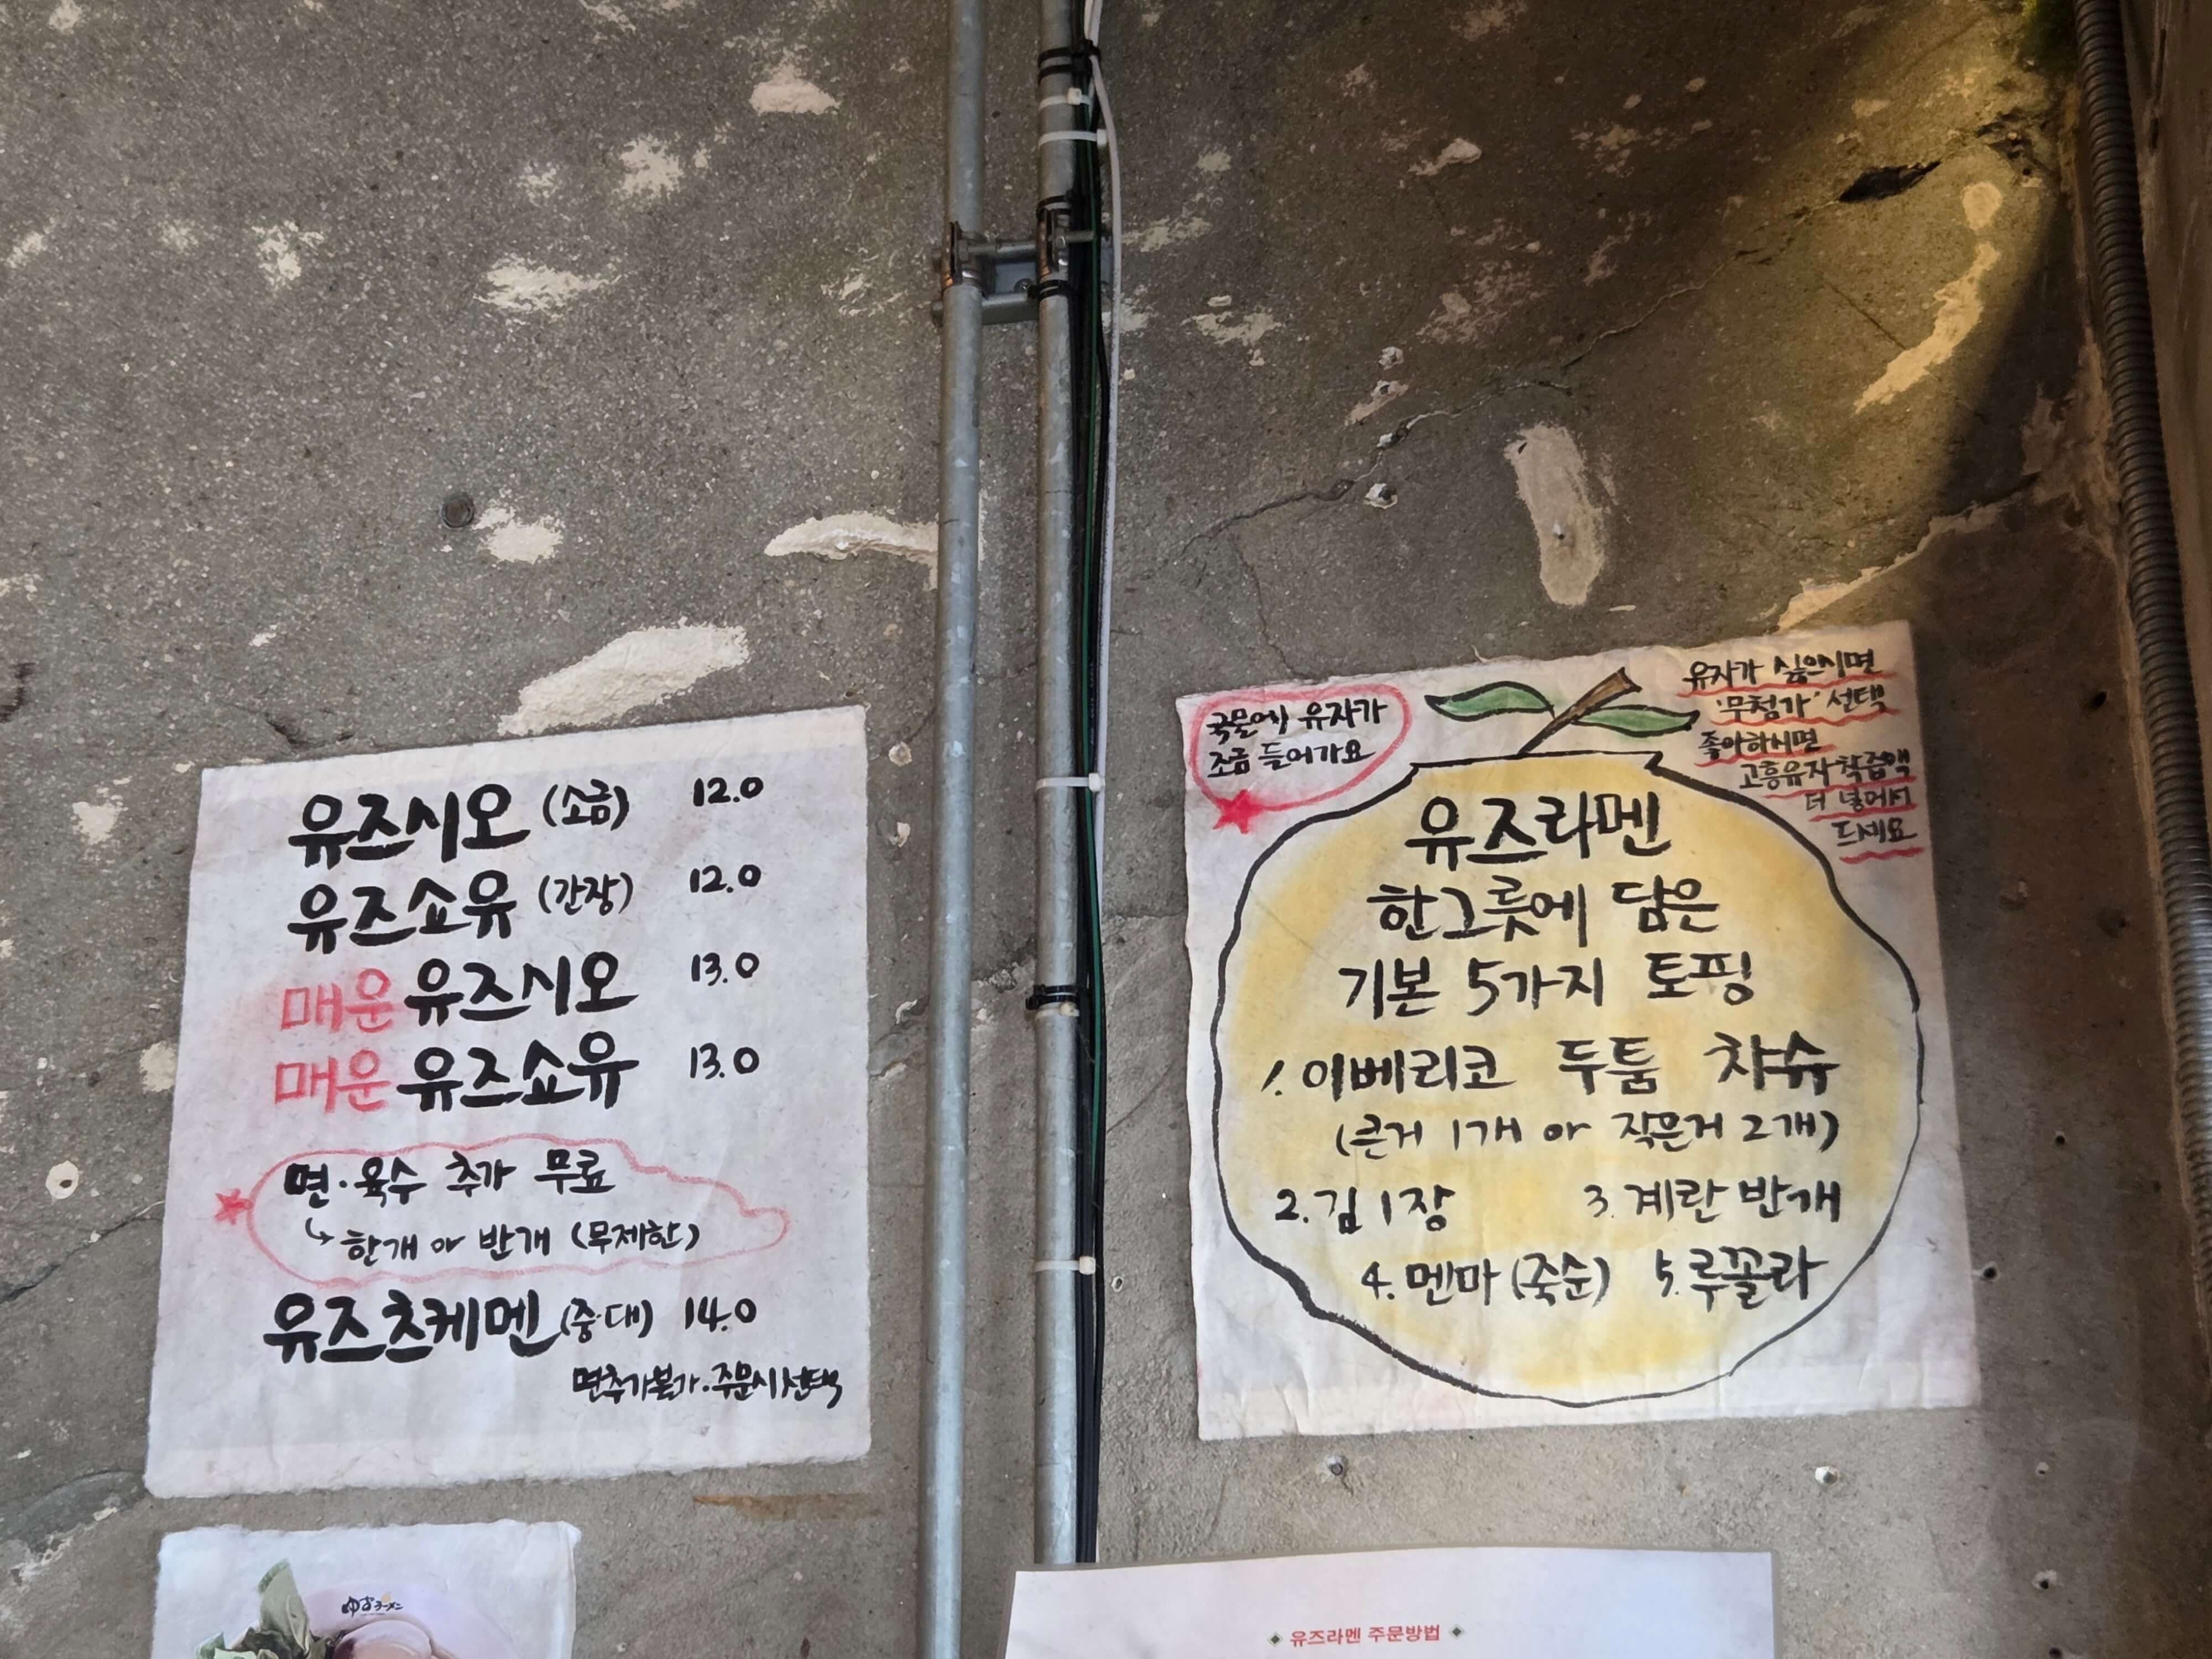 유즈시오 (소금) 12.0
유즈쇼유 (간장) 12.0
매운 유즈시오 13.0
매운 유즈쇼유 13.0
면·육수 추가 무료
↳ 한개 or 반개 (무제한)
유즈츠케멘 (중·대) 14.0
면추가불가·주문시선택
ゆずラーメン
국물에 유자가
조금 들어가요
유자가 싫으시면
'무첨가' 선택
좋아하시면
고흥유자착즙액
더 넣어서
드세요
유즈라멘
한그릇에 담은
기본 5가지 토핑
1. 이베리코 두툼 챠슈
(큰거 1개 or 작은거 2개)
2. 김 1장 3. 계란 반개
4. 멘마 (죽순) 5. 루꼴라
◆ 유즈라멘 주문방법 ◆